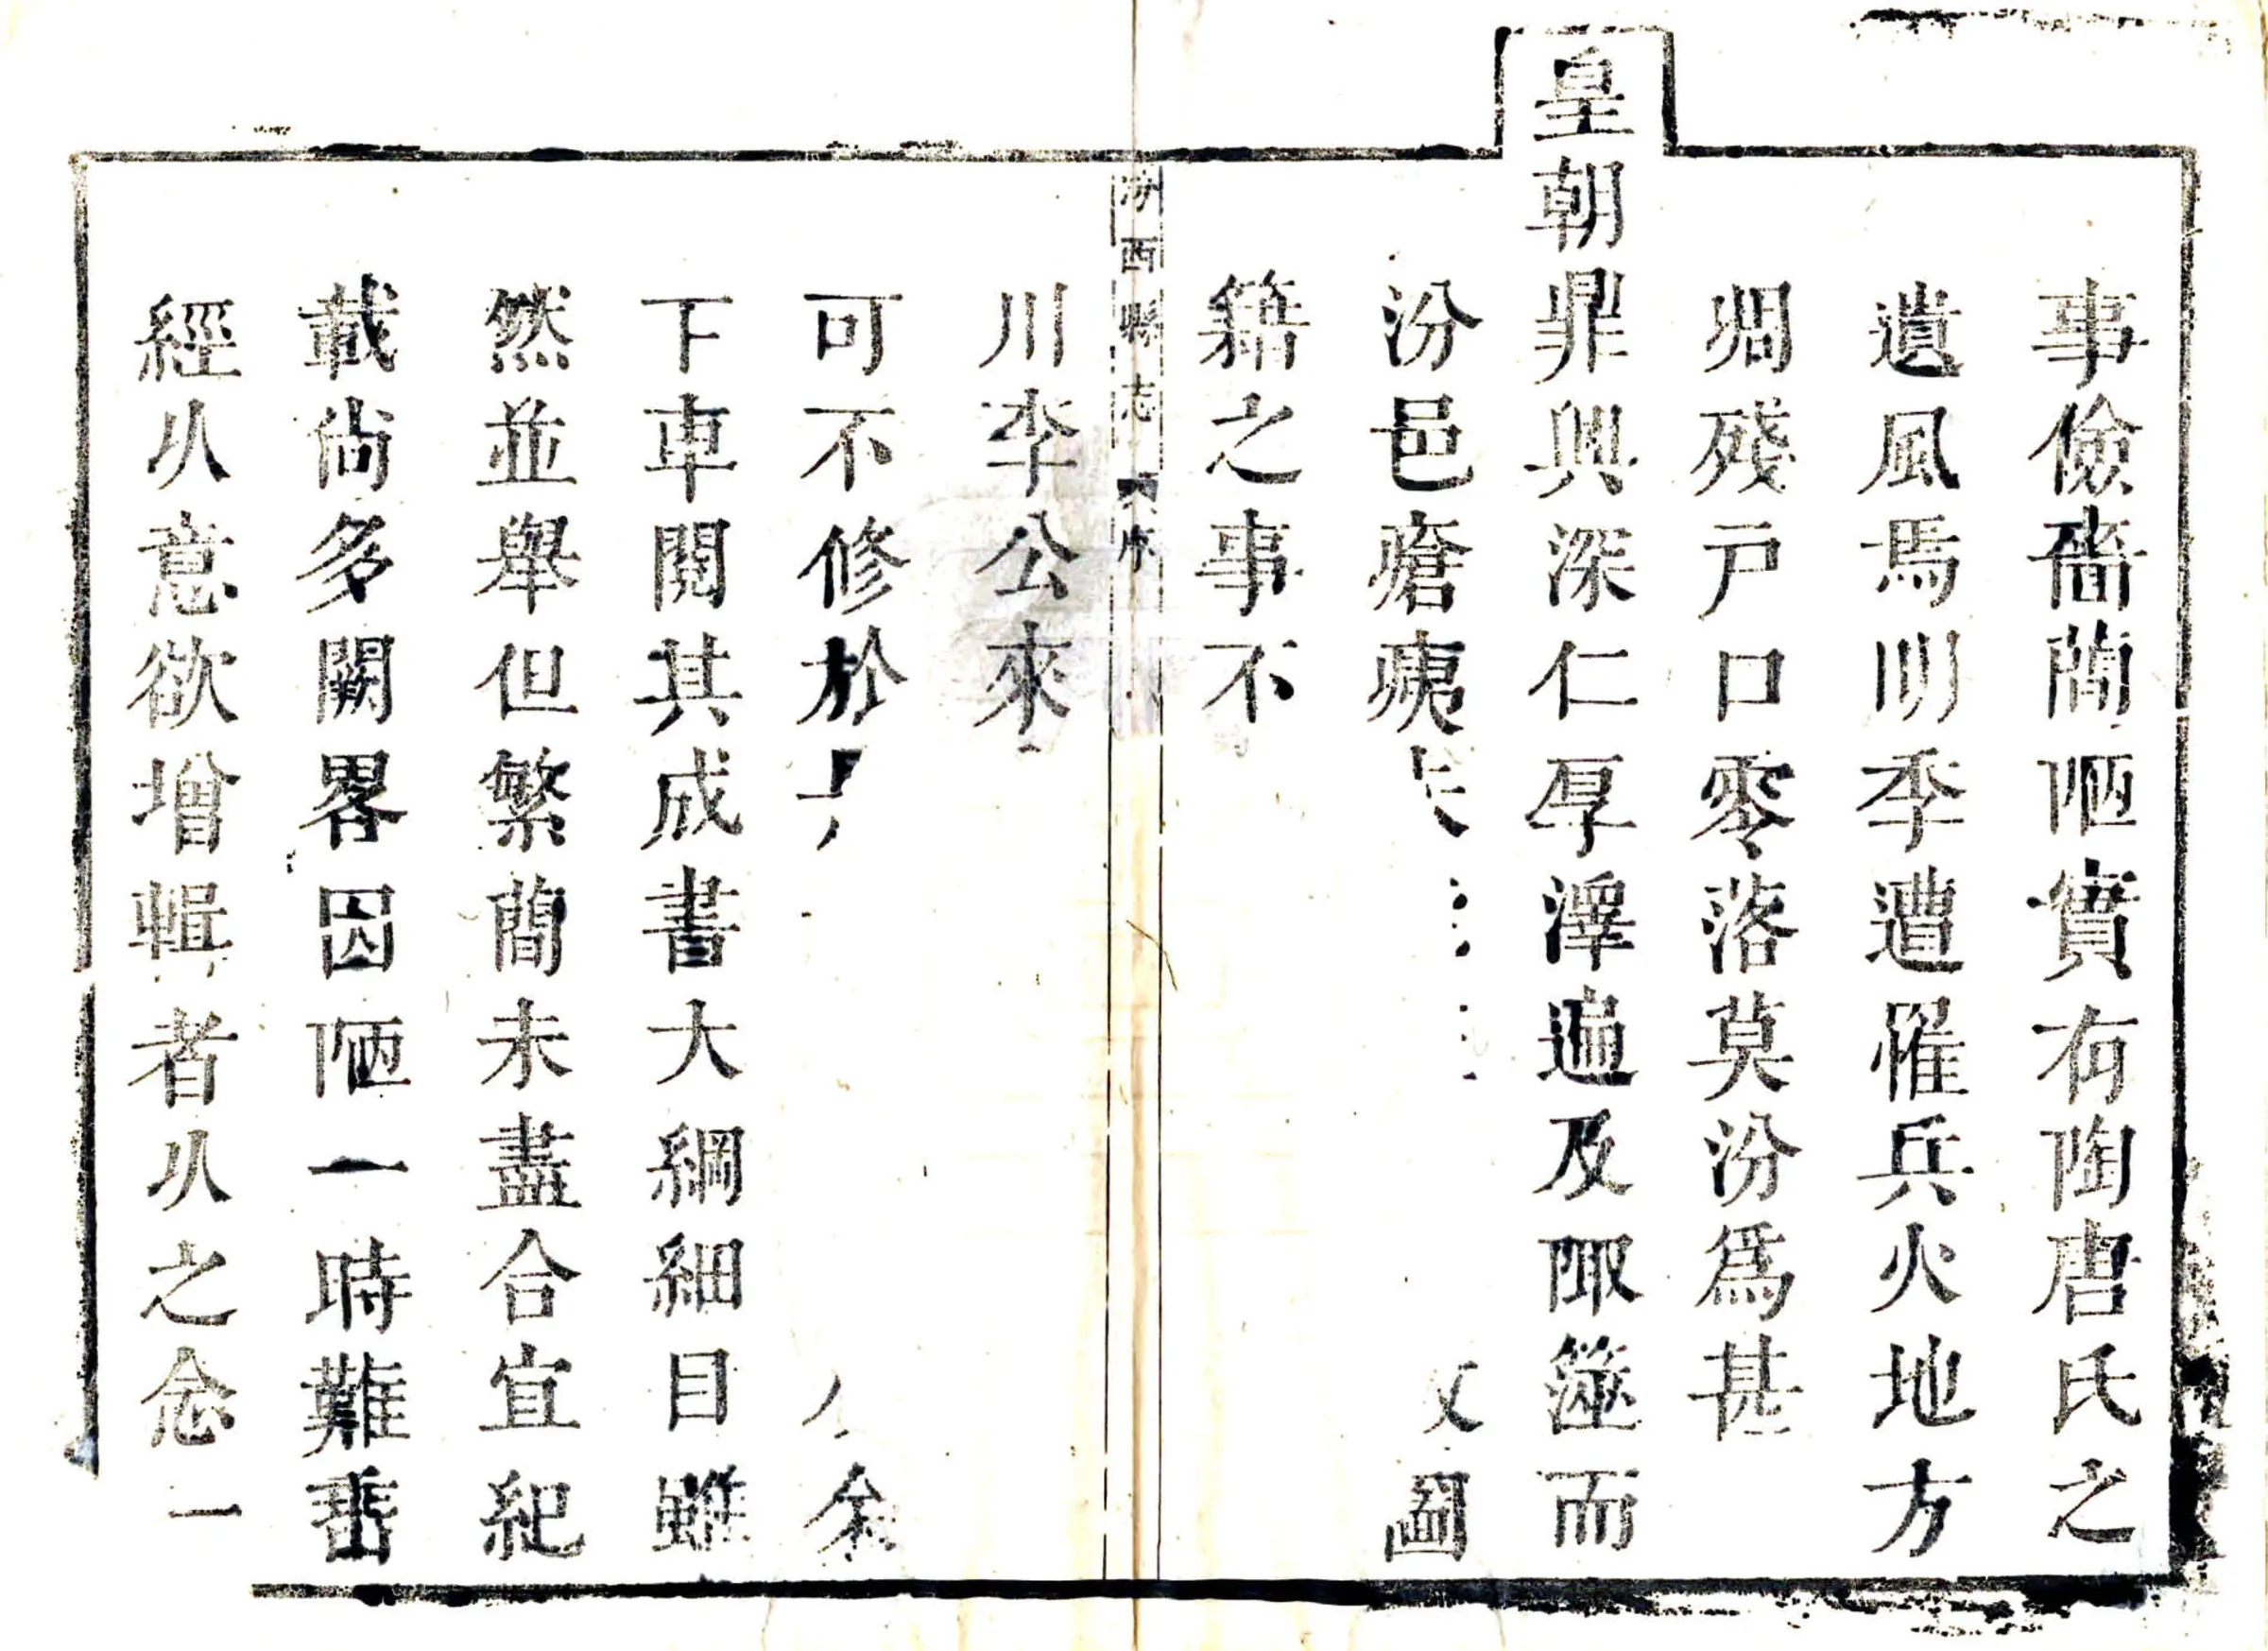 事儉嗇簡陋實有陶唐氏之
遺風焉明季遭罹兵火地方
凋殘戸口零落莫汾爲甚
皇朝鼎興深仁厚澤遍及陬澨而
汾邑瘡痍
圖
籍之事不
汾西縣志 序
川李公來
可不修於
余
下車閱其成書大綱細目雖
然並舉但繁簡未盡合宜紀
載尚多闕畧因陋一時難垂
經以意欲增輯者以之念一